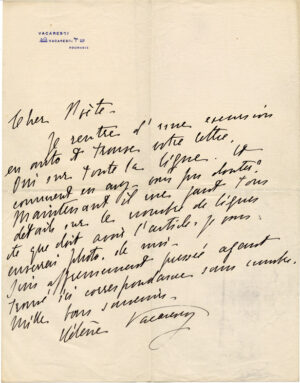 VACARESTI
VACARESTI
ROUMANIE
Cher Poète.
Je rentre d'une excursion
en auto et trouve votre lettre.
Oui sur toute la ligne. Et
comment en avez vous pu douter?
Maintenant il me faut tous
détails sur le nombre de lignes
etc que doit avoir l'article. Je vous
enverrai photo. de moi.
Suis affreusement pressée ayant
trouvé ici correspondance sans nombre.
Mille bons souvenirs.
Hélène Vacaresco